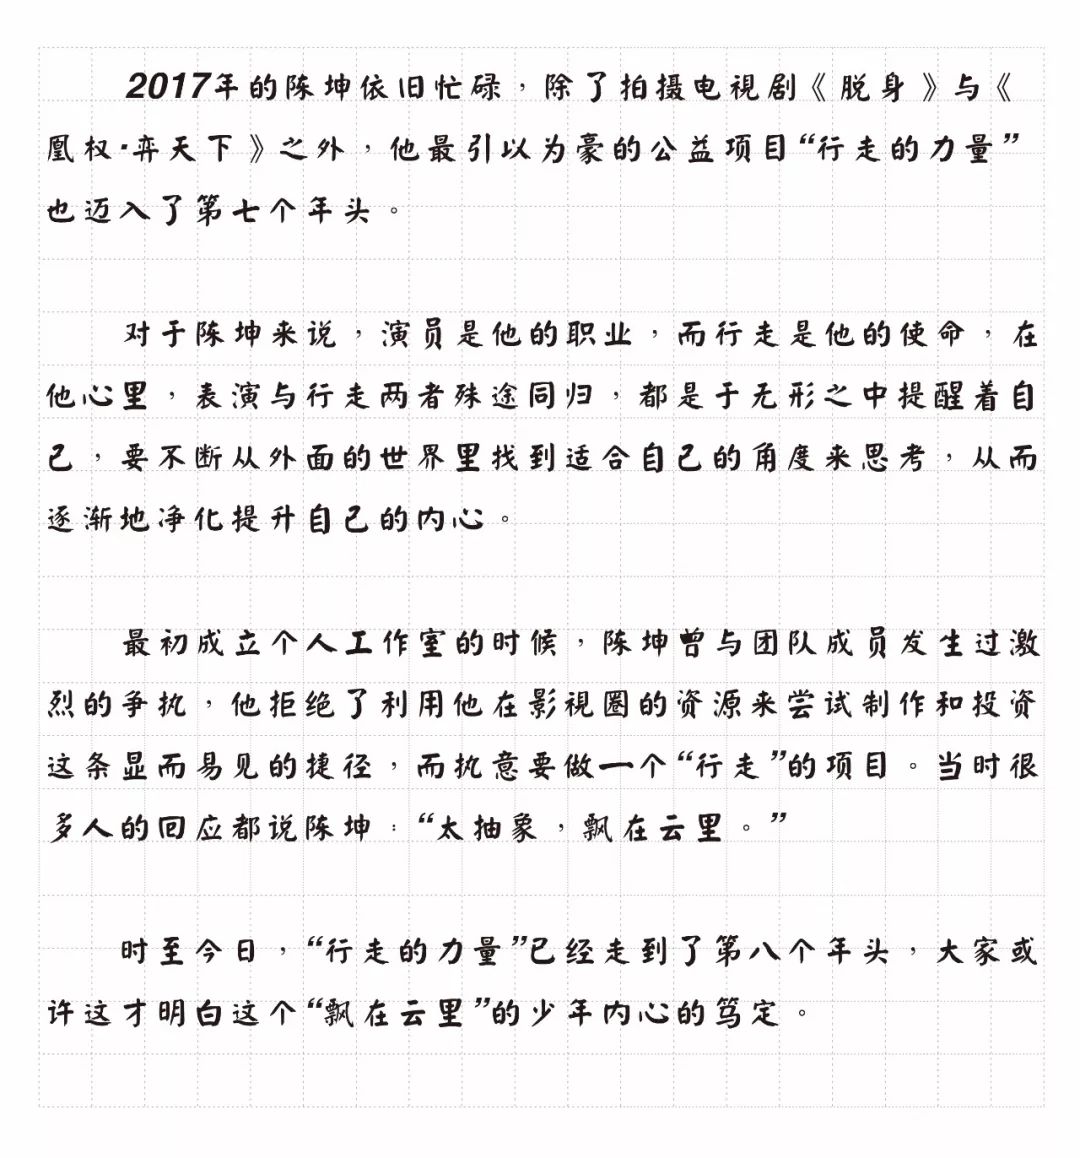 2017年的陈坤依旧忙碌，除了拍摄电視剧《脱身》与《
凰权·弈天下》之外，他最引以为豪的公益项目“行走的力量”
也迈入了第七个年头。
对于陈坤来说，演员是他的职业，而行走是他的使命，在
他心里，表演与行走两者殊途同归，都是于无形之中提醒着自
己，要不断从外面的世界里找到适合自己的角度来思考，从而
逐渐地净化提升自己的内心。
最初成立个人工作室的时候，陈坤曾与团队成员发生过激
烈的争执，他拒绝了利用他在影視圈的资源来尝试制作和投资
这条显而易见的捷径，而执意要做一个“行走”的项目。当时很
多人的回应都说陈坤：“太抽象，飘在云里。”
时至今日，“行走的力量”已经走到了第八个年头，大家或
许这才明白这个“飘在云里”的少年内心的笃定。